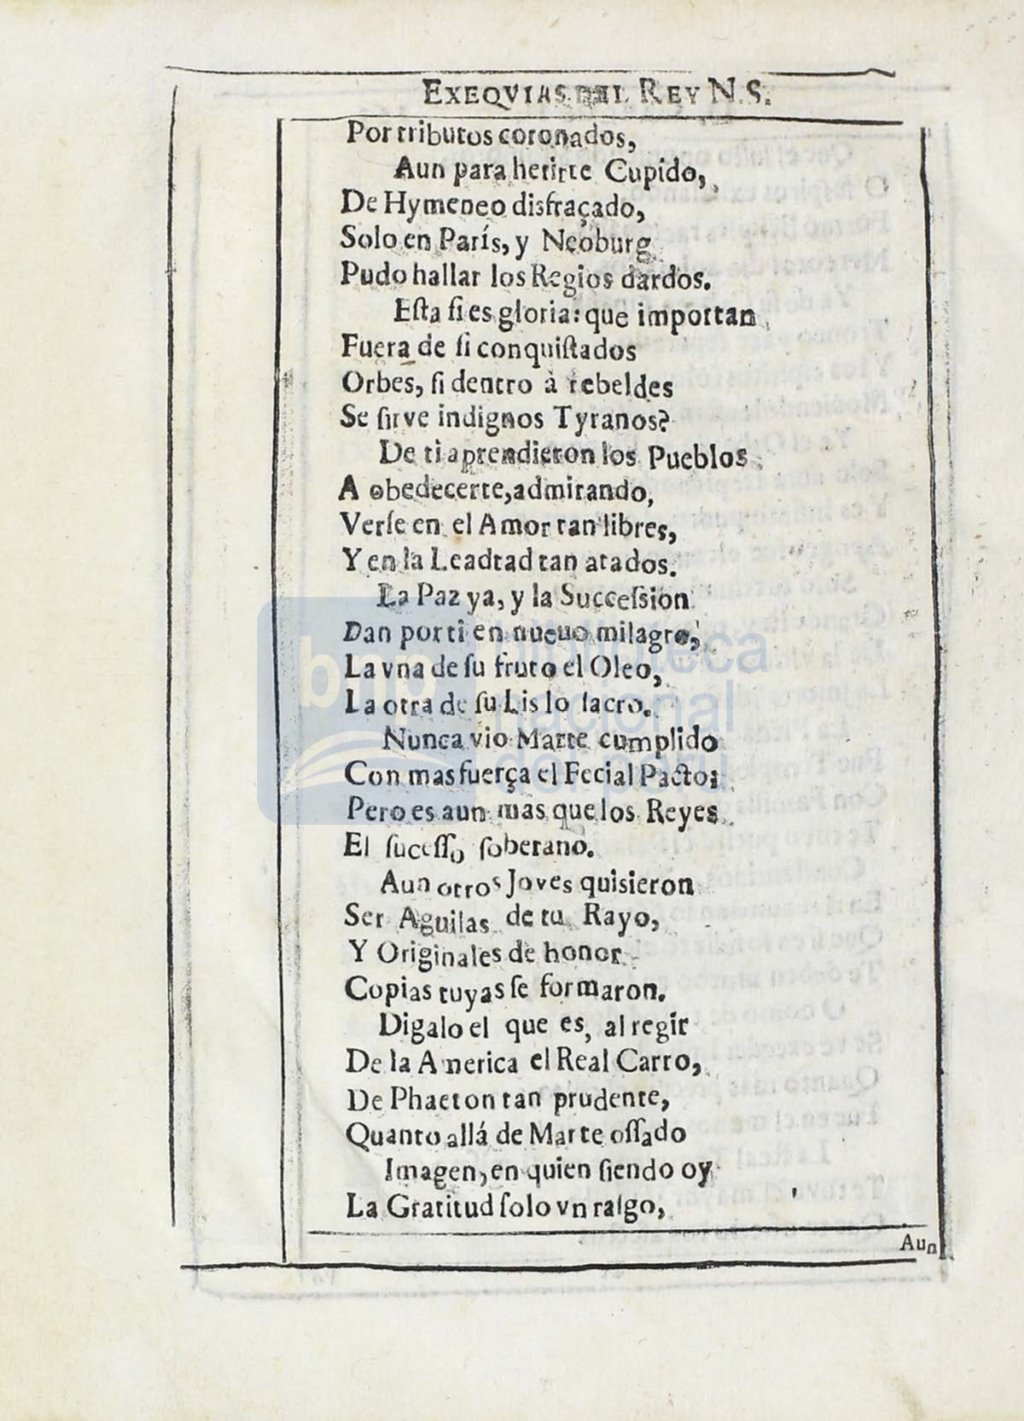 EXEQVIAS DEL REY N.S.
Por tributos coronados,
Aun para herirte Cupido,
De Hymeneo disfraçado,
Solo en París, y Neoburg
Pudo hallar los Regios dardos.
Esta si es gloria: que importan
Fuera de si conquistados
Orbes, si dentro à rebeldes
Se sirve indignos Tyranos?
De ti aprendieron los Pueblos
A obedecerte, admirando,
Verse en el Amor tan libres,
Y en la Leadtad tan atados.
La Paz ya, y la Succession
Dan por ti en nueuo milagro,
La vna de su fruto el Oleo,
La otra de su Lis lo sacro.
Nunca vio Marte cumplido
Con mas fuerça el Fecial Pacto;
Pero es aun mas que los Reyes
El sucesso soberano.
Aun otros Joves quisieron
Ser Aguilas de tu Rayo,
Y Originales de honor
Copias tuyas se formaron.
Digalo el que es, al regir
De la America el Real Carro,
De Phaeton tan prudente,
Quanto allá de Marte ossado
Imagen, en quien siendo oy
La Gratitud solo vn rasgo,
Aun
bnp biblioteca
nacional
del perú